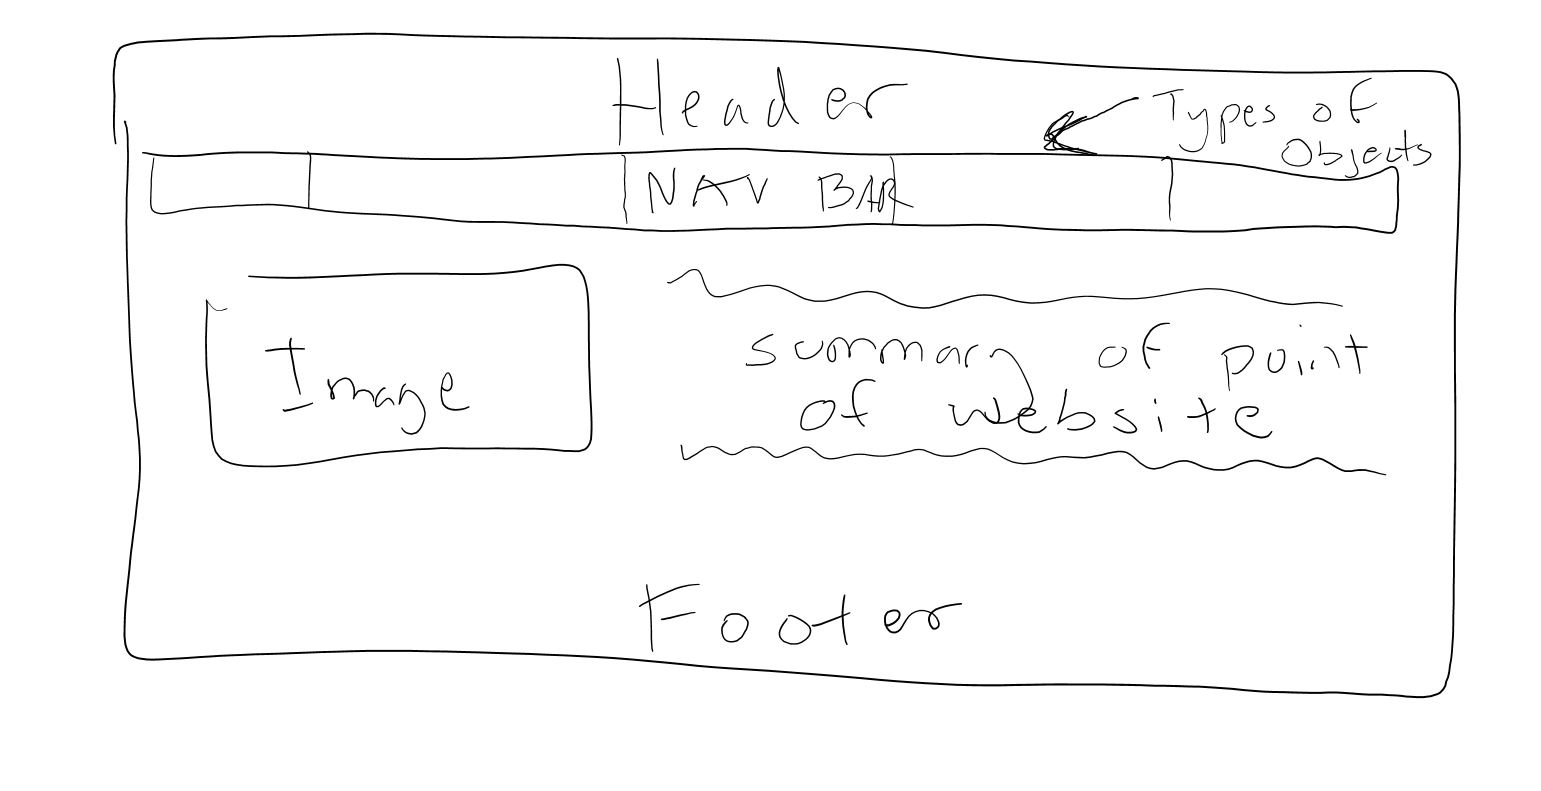 Header
Types of
Objects
NAV BAR
Image
summary of point
of website
Footer